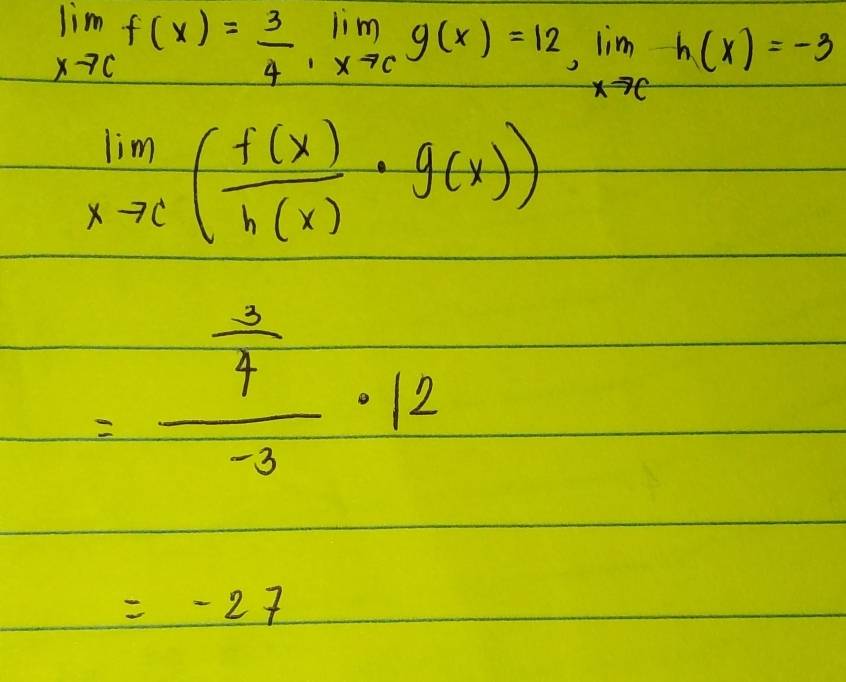 lim x→c f(x) = 3/4, lim x→c g(x) = 12, lim x→c h(x) = -3
lim x→c (f(x)/h(x) · g(x))
= (3/4)/-3 · 12
= -27